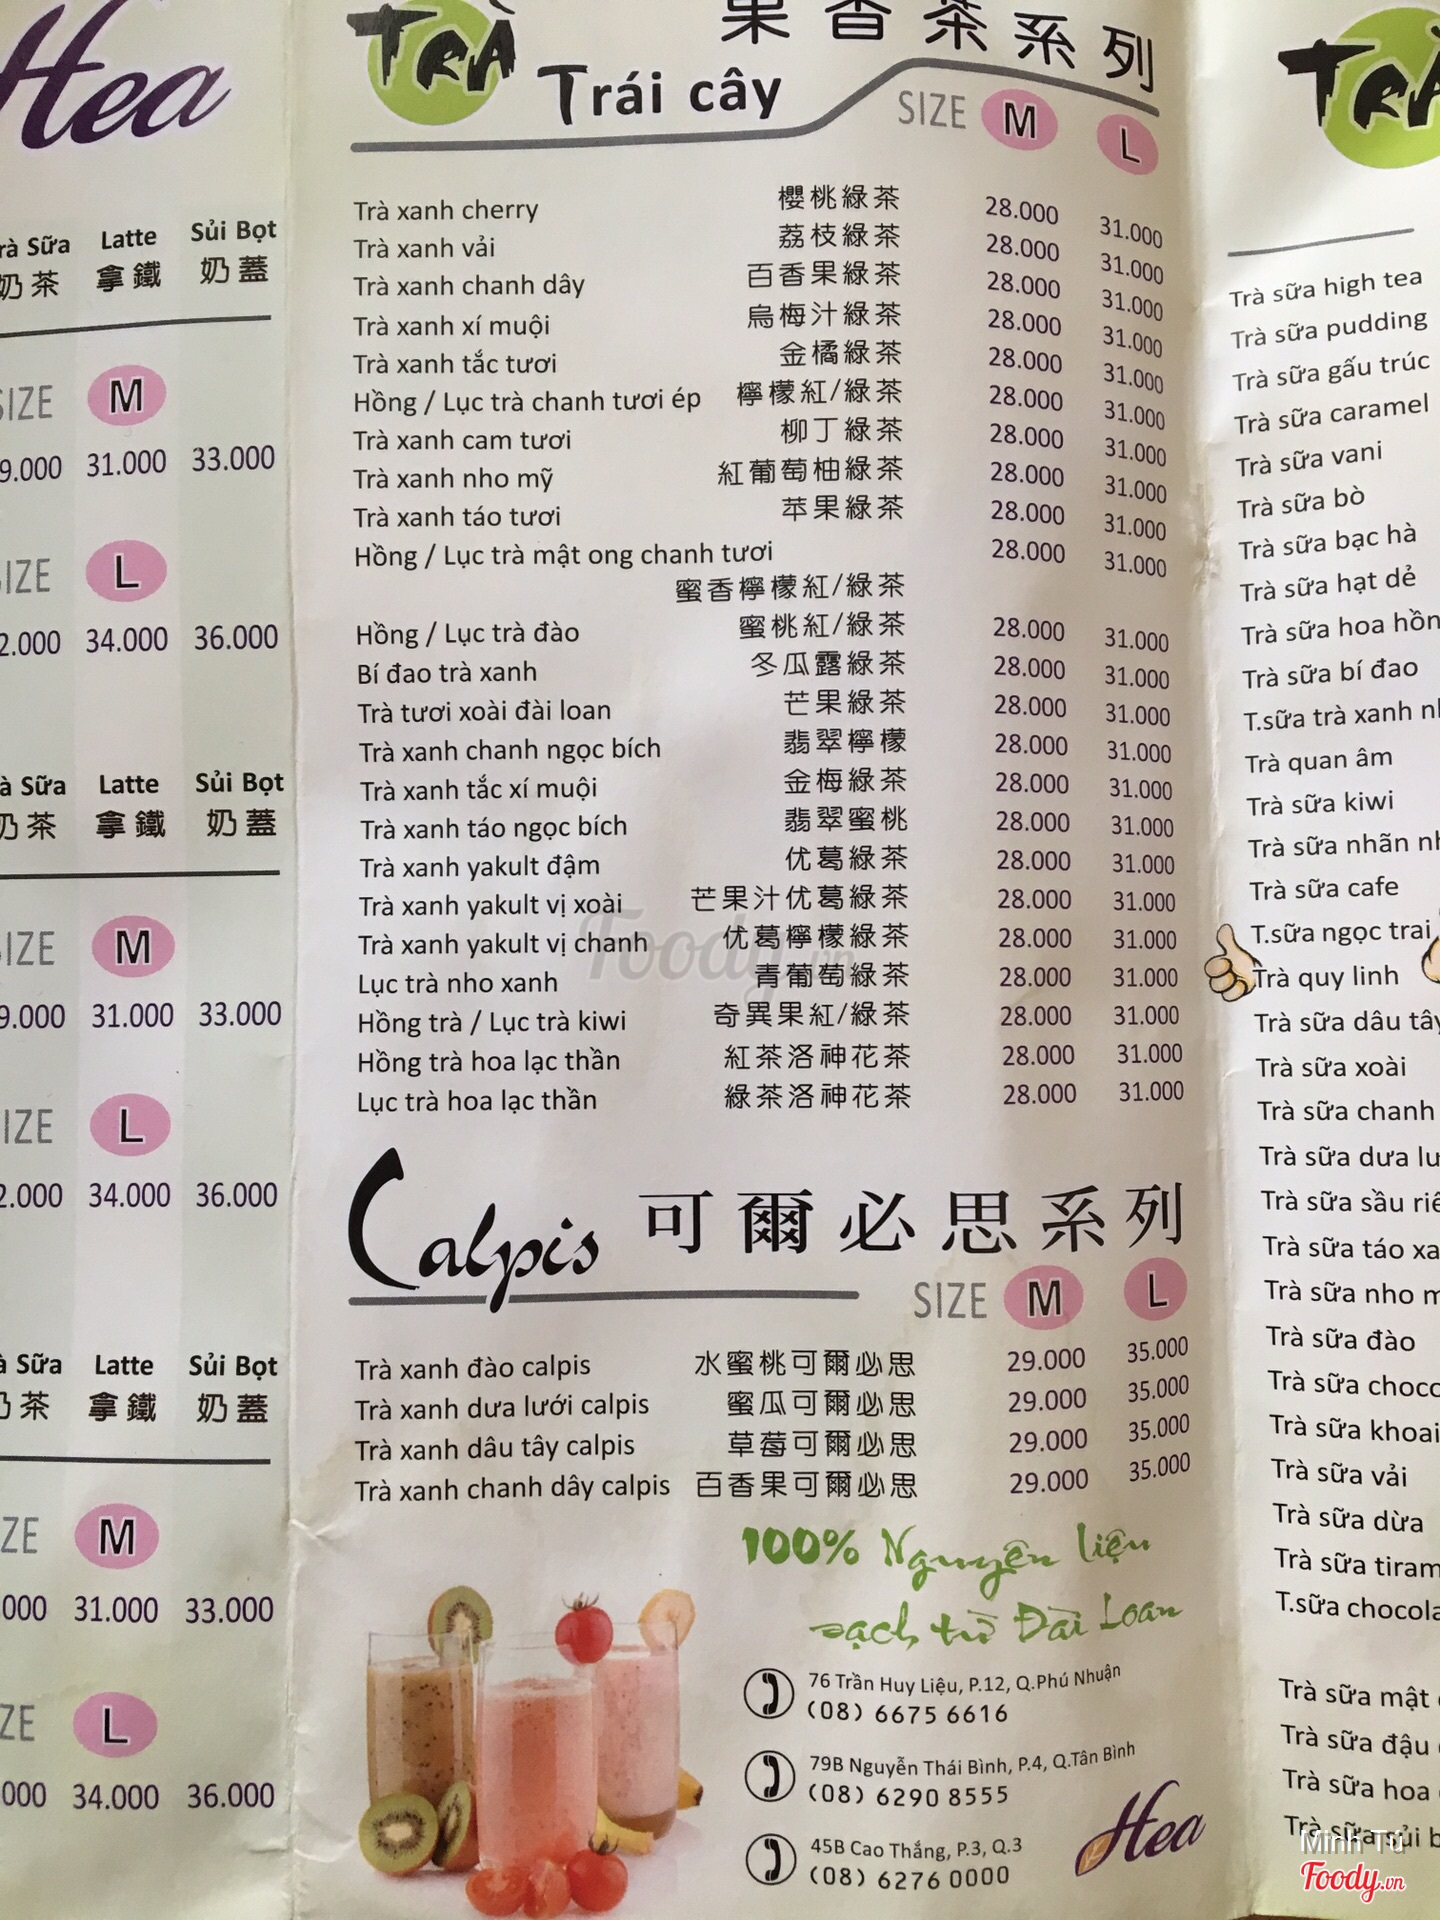 Hea
Trà Sữa Latte Sủi Bọt
奶茶 拿鐵 奶蓋
SIZE M
9.000 31.000 33.000
SIZE L
2.000 34.000 36.000
Trà Sữa Latte Sủi Bọt
奶茶 拿鐵 奶蓋
SIZE M
9.000 31.000 33.000
SIZE L
2.000 34.000 36.000
Trà Sữa Latte Sủi Bọt
奶茶 拿鐵 奶蓋
SIZE M
.000 31.000 33.000
SIZE L
.000 34.000 36.000
TRÀ 果香茶系列
Trái cây
SIZE M L
Trà xanh cherry 櫻桃綠茶 28.000 31.000
Trà xanh vải 荔枝綠茶 28.000 31.000
Trà xanh chanh dây 百香果綠茶 28.000 31.000
Trà xanh xí muội 烏梅汁綠茶 28.000 31.000
Trà xanh tắc tươi 金橘綠茶 28.000 31.000
Hồng / Lục trà chanh tươi ép 檸檬紅/綠茶 28.000 31.000
Trà xanh cam tươi 柳丁綠茶 28.000 31.000
Trà xanh nho mỹ 紅葡萄柚綠茶 28.000 31.000
Trà xanh táo tươi 苹果綠茶 28.000 31.000
Hồng / Lục trà mật ong chanh tươi 28.000 31.000
蜜香檸檬紅/綠茶
Hồng / Lục trà đào 蜜桃紅/綠茶 28.000 31.000
Bí đao trà xanh 冬瓜露綠茶 28.000 31.000
Trà tươi xoài đài loan 芒果綠茶 28.000 31.000
Trà xanh chanh ngọc bích 翡翠檸檬 28.000 31.000
Trà xanh tắc xí muội 金梅綠茶 28.000 31.000
Trà xanh táo ngọc bích 翡翠蜜桃 28.000 31.000
Trà xanh yakult đậm 优葛綠茶 28.000 31.000
Trà xanh yakult vị xoài 芒果汁优葛綠茶 28.000 31.000
Trà xanh yakult vị chanh 优葛檸檬綠茶 28.000 31.000
Lục trà nho xanh 青葡萄綠茶 28.000 31.000
Hồng trà / Lục trà kiwi 奇異果紅/綠茶 28.000 31.000
Hồng trà hoa lạc thần 紅茶洛神花茶 28.000 31.000
Lục trà hoa lạc thần 綠茶洛神花茶 28.000 31.000
Calpis 可爾必思系列
SIZE M L
Trà xanh đào calpis 水蜜桃可爾必思 29.000 35.000
Trà xanh dưa lưới calpis 蜜瓜可爾必思 29.000 35.000
Trà xanh dâu tây calpis 草莓可爾必思 29.000 35.000
Trà xanh chanh dây calpis 百香果可爾必思 29.000 35.000
100% Nguyên liệu
sạch từ Đài Loan
76 Trần Huy Liệu, P.12, Q.Phú Nhuận
(08) 6675 6616
79B Nguyễn Thái Bình, P.4, Q.Tân Bình
(08) 6290 8555
45B Cao Thắng, P.3, Q.3
(08) 6276 0000
Hea
TRÀ
Trà sữa high tea
Trà sữa pudding
Trà sữa gấu trúc
Trà sữa caramel
Trà sữa vani
Trà sữa bò
Trà sữa bạc hà
Trà sữa hạt dẻ
Trà sữa hoa hồn
Trà sữa bí đao
T.sữa trà xanh nh
Trà quan âm
Trà sữa kiwi
Trà sữa nhãn nh
Trà sữa cafe
T.sữa ngọc trai
Trà quy linh
Trà sữa dâu tây
Trà sữa xoài
Trà sữa chanh
Trà sữa dưa lư
Trà sữa sầu riê
Trà sữa táo xa
Trà sữa nho m
Trà sữa đào
Trà sữa choco
Trà sữa khoai
Trà sữa vải
Trà sữa dừa
Trà sữa tiram
T.sữa chocola
Trà sữa mật
Trà sữa đậu
Trà sữa hoa
Trà sữa sủi b
Foody.vn
Minh Tú
Foody.vn